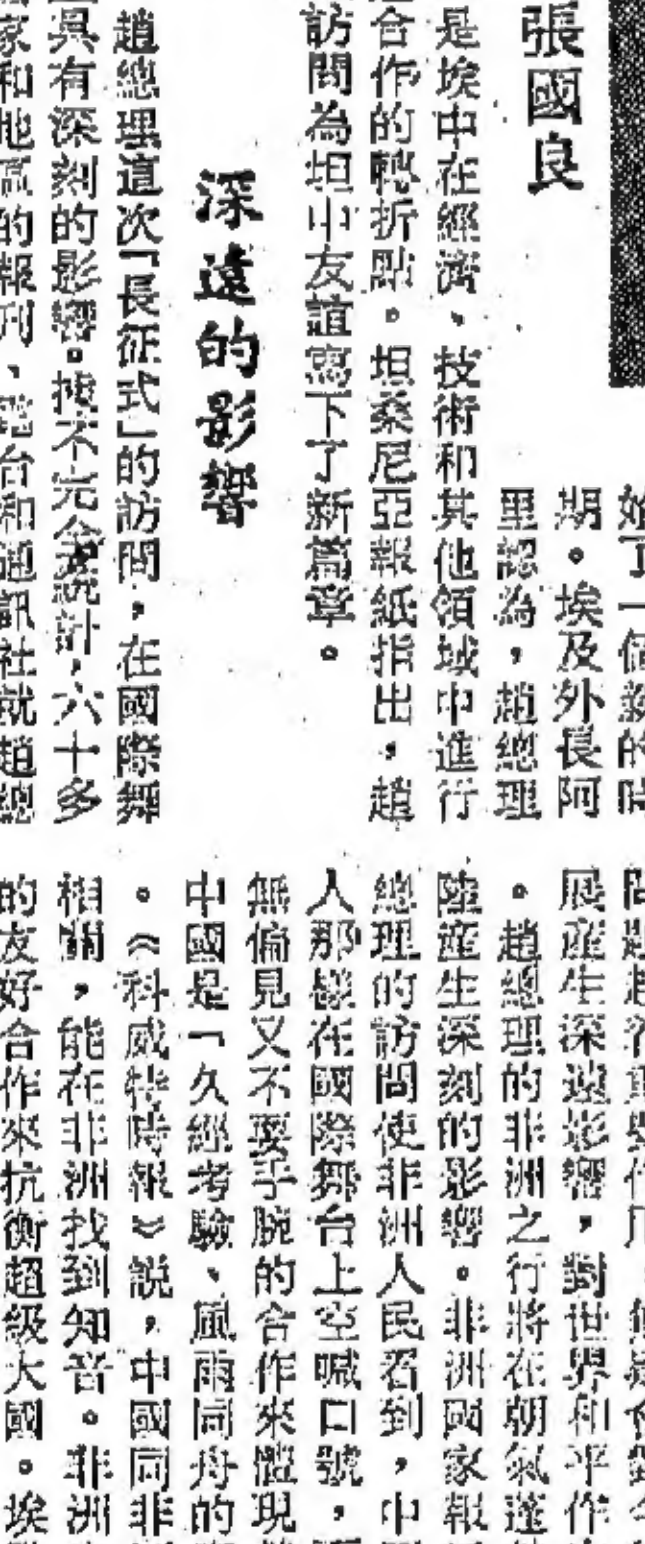 張國良
始了一個新的時
期。埃及外長阿
里認為，趙總理
是埃中在經濟、技術和其他領域中進行
合作的轉折點。坦桑尼亞報紙指出，趙
訪問為坦中友誼寫下了新篇章。
深遠的影響
趙總理這次「長征式」的訪問，在國際舞
具有深刻的影響。據不完全統計，六十多
家和地區的報刊、電台和通訊社就趙總
展產生深遠影響，對世界和平作
。趙總理的非洲之行將在朝氣蓬
陸產生深刻的影響。非洲國家報
總理的訪問使非洲人民看到，中
人那樣在國際舞台上空喊口號，
無偏見又不耍手腕的合作來體現
中國是「久經考驗、風雨同舟的
。《科威特時報》説，中國同非
相關，能在非洲找到知音。非洲
的友好合作來抗衡超級大國。埃